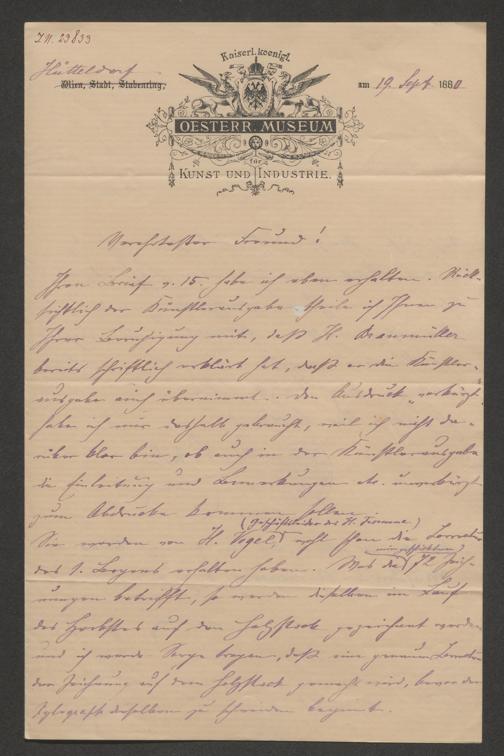 I.N. 23833
Kaiserl. koenigl.
Hütteldorf
Wien, Stadt, Stubenring,
am 19. Sept. 1880
OESTERR. MUSEUM
für
KUNST UND INDUSTRIE.
Verehrtester Freund!
Ihren Brief v. 15. habe ich eben erhalten. Rück-
sichtlich der Künstlerausgabe theile ich Ihnen zu
Ihrer Beruhigung mit, daß H. Braumüller
bereits schriftlich erklärt hat, daß er die Künstler-
ausgabe auch übernimmt. Den Ausdruck „verkürzt“
habe ich nur deshalb gebraucht, weil ich nicht da-
rüber klar bin, ob auch in der Künstlerausgabe
die Einleitung und Bemerkungen etc. unverkürzt
zum Abdrucke kommen sollen.
(Geschäftsleiter des H. )
Sie werden von H. Vogel, wohl schon die Correctur
des 1. Bogens erhalten haben. Was die 72 Zeich-
nungen betrifft, so werden dieselben im Lauf
des Herbstes auf den Holzstock gezeichnet werden
und ich werde Sorge tragen, daß eine genaue Correctur
der Zeichnung auf dem Holzstock gemacht wird, bevor der
Xylograph dieselben zu schneiden beginnt.